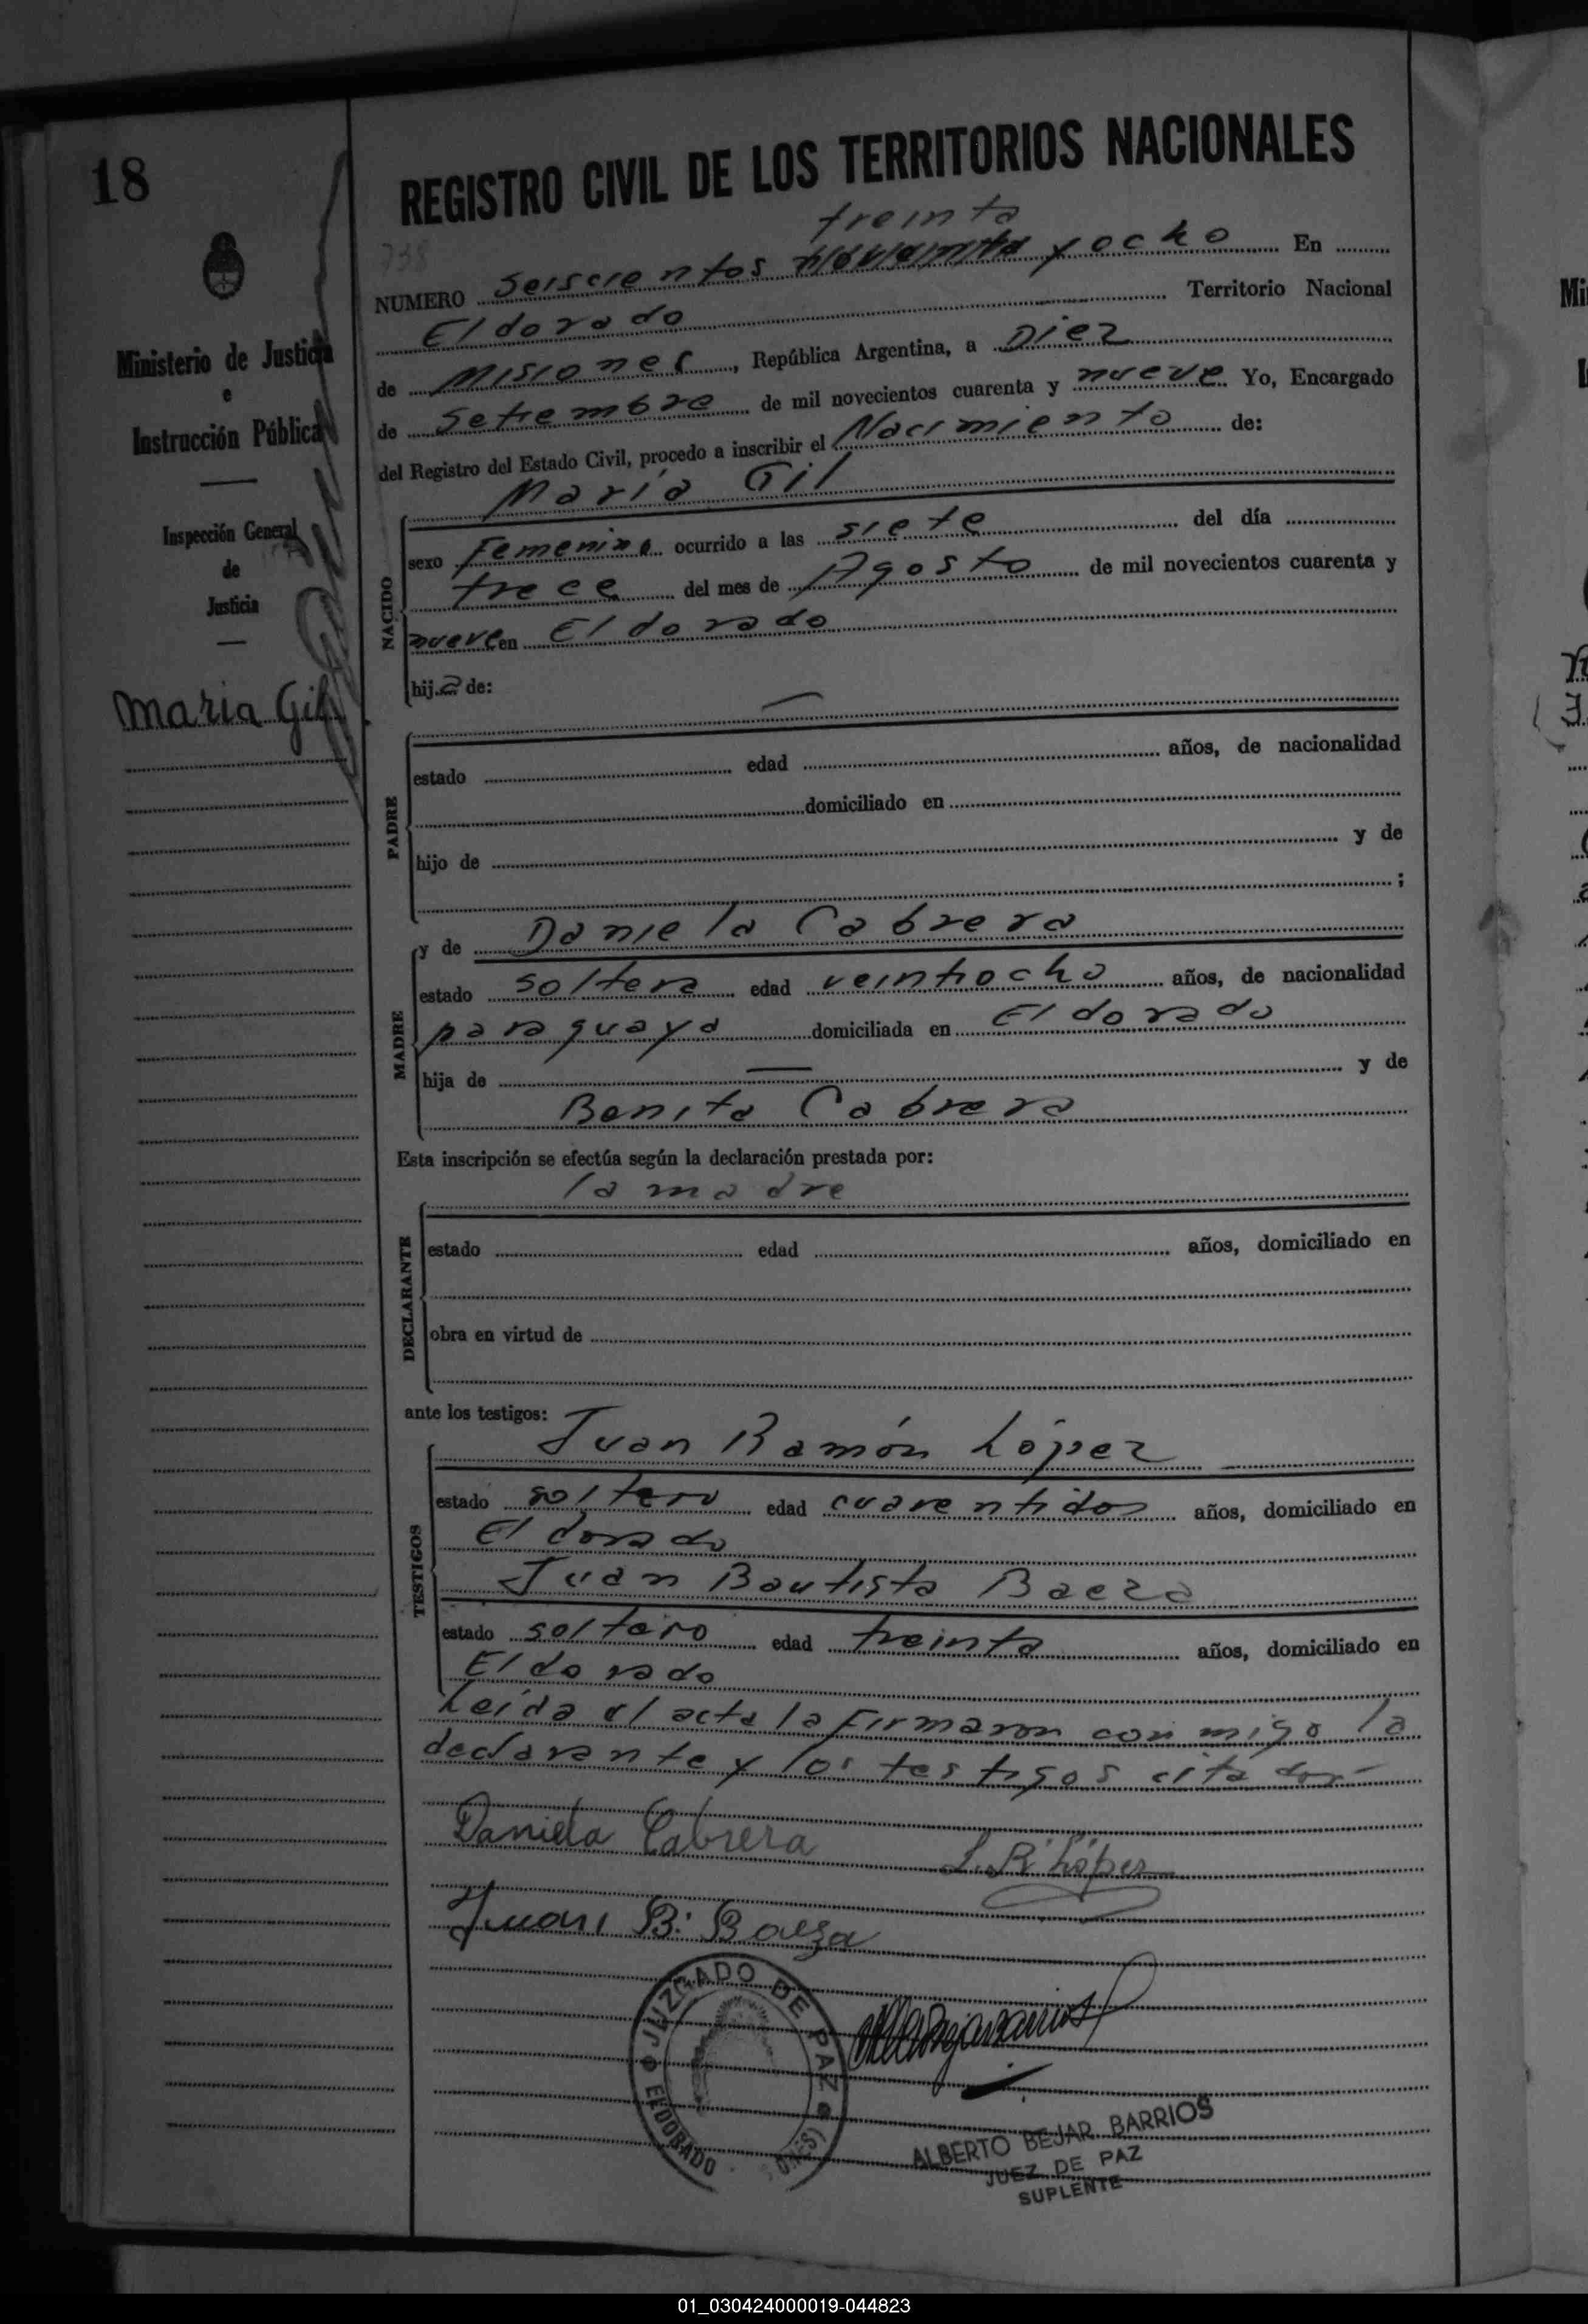 18
REGISTRO CIVIL DE LOS TERRITORIOS NACIONALES
treinta
738
NUMERO Seiscientos y ocho En
Eldorado Territorio Nacional
de Misiones, República Argentina, a Diez
de Setiembre de mil novecientos cuarenta y nueve Yo, Encargado
del Registro del Estado Civil, procedo a inscribir el Nacimiento de:
Ministerio de Justicia
e
Instrucción Pública
Inspección General
de
Justicia
Maria Gil
NACIDO
María Gil
sexo Femenino ocurrido a las siete del día
trece del mes de Agosto de mil novecientos cuarenta y
nueve en Eldorado
hija de:
PADRE
estado edad años, de nacionalidad
domiciliado en
hijo de y de
;
MADRE
y de Daniela Cabrera
estado soltera edad veintiocho años, de nacionalidad
paraguaya domiciliada en Eldorado
hija de — y de
Benita Cabrera
Esta inscripción se efectúa según la declaración prestada por:
la madre
DECLARANTE
estado edad años, domiciliado en
obra en virtud de
ante los testigos:
TESTIGOS
Juan Ramón López
estado soltero edad cuarentidos años, domiciliado en
Eldorado
Juan Bautista Baeza
estado soltero edad treinta años, domiciliado en
Eldorado
Leida el acta la Firmaron con migo la
declarante y los testigos citados-
Daniela Cabrera
J. R. López
Juan B. Baeza
JUZGADO DE PAZ
ELDORADO
ALBERTO BEJAR BARRIOS
JUEZ DE PAZ
SUPLENTE
01_030424000019-044823